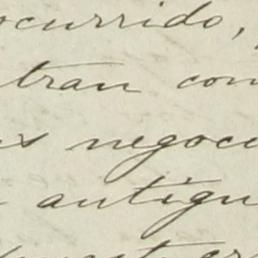 ocurrido,
tran con
s negoci
antigu